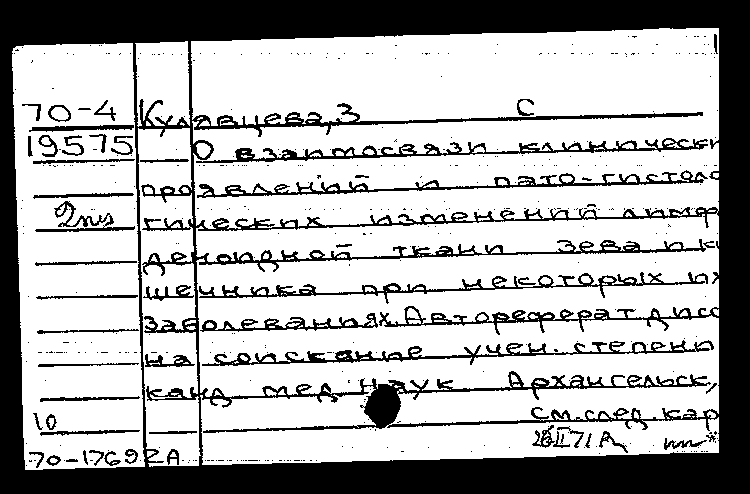 70-4 Кулявцева, З С
19575 О взаимосвязи клинически
проявлений и пато-гистоло
гических изменений лимф
деноидной ткани зева и ки
шечника при некоторых их
заболеваниях. Автореферат дисс
на соискание учен. степени
канд мед наук Архангельск,
10 См. след. кар
70-17692А